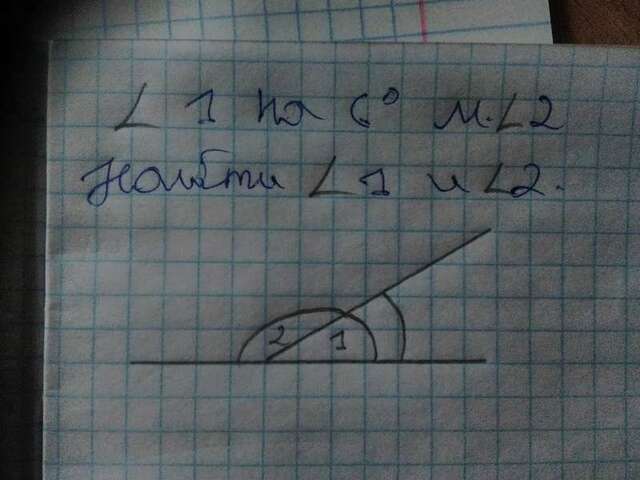 ∠ 1 на 6° м.∠2
Найти ∠1 и ∠2.
2 1